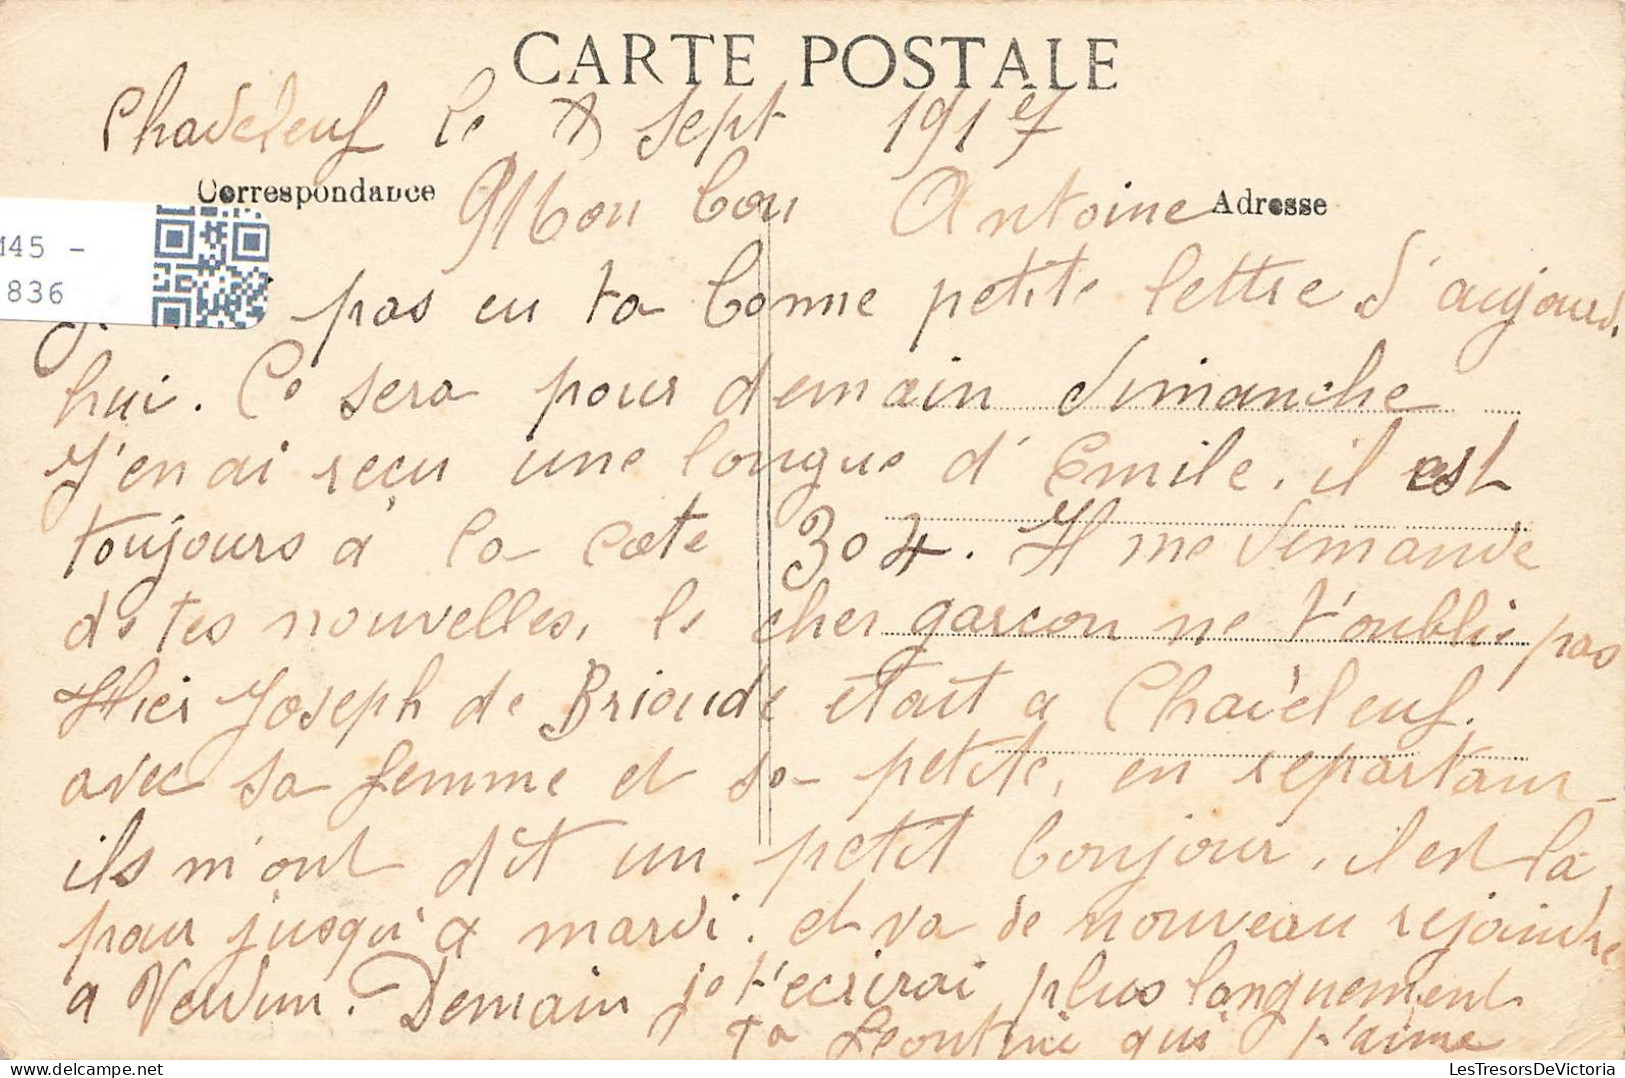 CARTE POSTALE
Chadeleuf le 8 sept 1917
Correspondance
Adresse
Mon bon Antoine
M45 -
836
pas eu ta bonne petite lettre d'aujourd
hui. Ce sera pour demain dimanche
J'en ai reçu une longue d'Emile. il est
toujours à la cote 304. Il me demande
de tes nouvelles, le cher garçon ne t'oublie pas
Hier Joseph de Brioude était a Chadeleuf.
avec sa femme et sa petite, en repartant
ils m'ont dit un petit bonjour, il est là
pour jusqu'à mardi. et va de nouveau rejoindre
a Verdun. Demain je t'ecrirai plus longuement
ta Leontine qui t'aime
LesTresorsDeVictoria